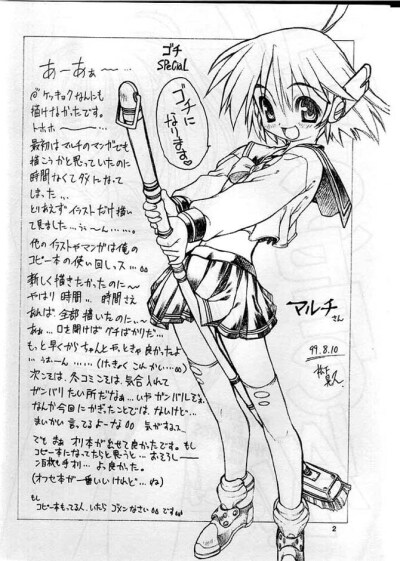 ゴチ
SPECiAL
ゴチに
なります♡
あーあぁー〜…
@ケッキョクなんにも
描けなかったです。
トホホ ー〜…。
最初はマルチのマンガでも
描こうかと思っていたのに
時間なくてダメになって
しまった…
とりあえずイラストだけ描い
て見ました…うぃ〜ん……。
他のイラストやマンガは俺の
コピー本の使い回しッス…
新しく描きたかったのに〜
やはり時間… 時間さえ
あれば全部描いたのにぃ〜
あぁ… 口を開けばグチばかりだ…
もっと早くからちゃんとやっときゃ良かったよ
…うぉーん……。(けっきょくこれかい…)
次こそは、冬コミこそは、気合入れて
ガンバリたい所だなぁ…いやガンバルです。
なんか今回にかぎったことでは、ないけど…
まいかい言ってるよーな 気がするて
でも まぁ オリ本が出せて良かったです。もし
コピー本になってたらと思うと… おそろし〜
よ。良かった。
(オフセ本が一番いいけれど…ね)
もし
コピー本もってる人、いたら ゴメンなさい です
マルチさん
99.8.10
2